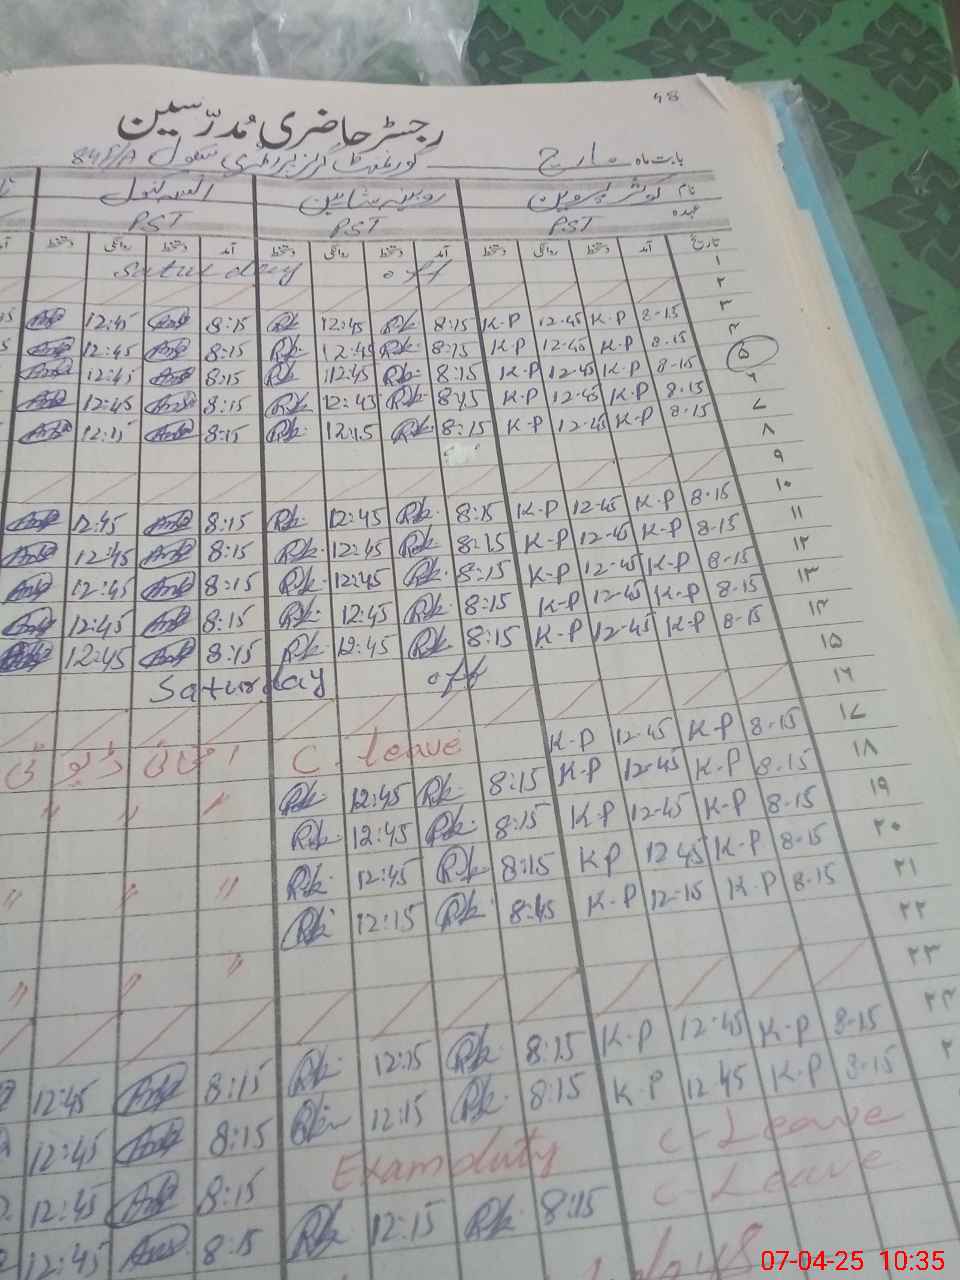 48
رجسٹر حاضری مدرسین
بابت ماہ مارچ گورنمنٹ گرلز پرائمری سکول 84F/A
نام کوثر پروین روبینہ شاہین
عہدہ PST PST PST
تاریخ آمد دستخط روانگی دستخط آمد دستخط روانگی دستخط آمد دستخط روانگی دستخط
۱ saturday off
۲
۳ 8-15 K-P 12-45 K-P 8:15 Rk 12:45 Rk 8:15 12:45
۴ 8-15 K-P 12-45 K-P 8:15 Rk 12:45 Rk 8:15 12:45
۵ 8-15 K-P 12-45 K-P 8:15 Rk 12:45 Rk 8:15 12:45
۶ 8-15 K-P 12-45 K-P 8:15 Rk 12:45 Rk 8:15 12:45
۷ 8-15 K-P 12-45 K-P 8:15 Rk 12:15 Rk 8:15 12:15
۸
۹
۱۰ 8-15 K-P 12-45 K-P 8:15 Rk 12:45 Rk 8:15 12:45
۱۱ 8-15 K-P 12-45 K-P 8:15 Rk 12:45 Rk 8:15 12:45
۱۲ 8-15 K-P 12-45 K-P 8:15 Rk 12:45 Rk 8:15 12:45
۱۳ 8-15 K-P 12-45 K-P 8:15 Rk 12:45 Rk 8:15 12:45
۱۴ 8-15 K-P 12-45 K-P 8:15 Rk 12:45 Rk 8:15 12:45
۱۵ Saturday off
۱۶
۱۷ 8-15 K-P 12-45 K-P C. leave
۱۸ 8-15 K-P 12-45 K-P 8:15 Rk 12:45 Rk " " "
۱۹ 8-15 K-P 12-45 K-P 8:15 Rk 12:45 Rk
۲۰ 8-15 K-P 12-45 K-P 8:15 Rk 12:45 Rk " " "
۲۱ 8-15 K-P 12-15 K-P 8:45 Rk 12:15 Rk
۲۲ " " "
۲۳
۲۴ 8-15 K-P 12-45 K-P 8:15 Rk 12:15 Rk 8:15 12:45
8-15 K-P 12-45 K-P 8:15 Rk 12:15 Rk 8:15 12:45
C-Leave Exam duty 8:15 12:45
C-Leave 8:15 Rk 12:15 Rk 8:15 12:45
07-04-25 10:35